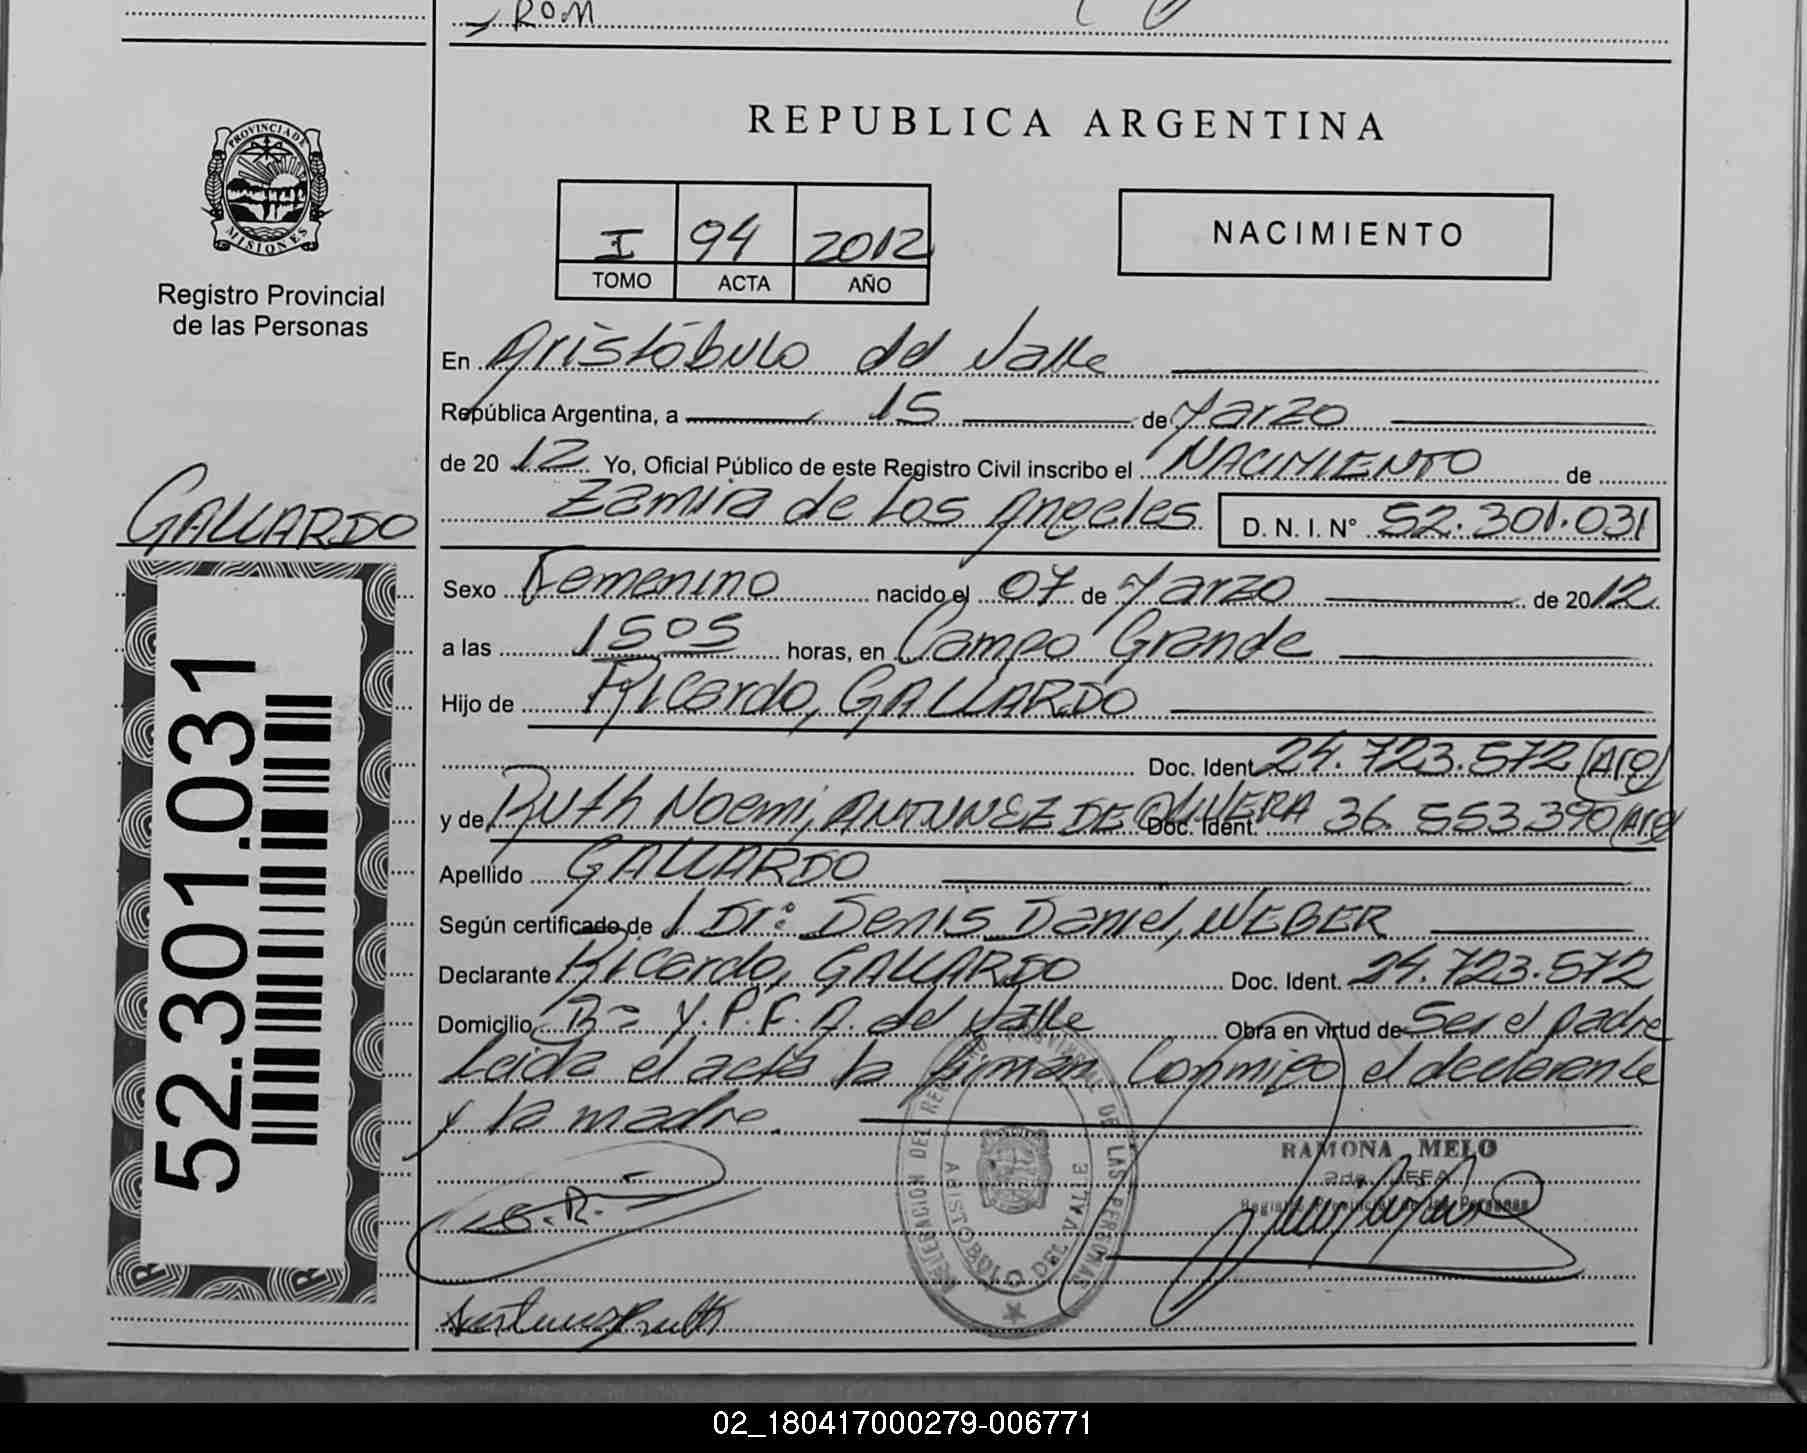 ROM
PROVINCIA DE
MISIONES
Registro Provincial
de las Personas
REPUBLICA ARGENTINA
I 94 2012
TOMO ACTA AÑO
NACIMIENTO
En Aristóbulo del Valle
República Argentina, a 15 de Marzo
de 2012 Yo, Oficial Público de este Registro Civil inscribo el NACIMIENTO de
Zamira de Los Angeles D. N. I. N° 52.301.031
GALLARDO
52.301.031
Sexo Femenino nacido el 07 de Marzo de 2012
a las 15 05 horas, en Campo Grande
Hijo de Ricardo, GALLARDO
Doc. Ident 24.723.572 (Arg)
y de Ruth Noemi, ANTUNEZ DE OLIVERA Doc. Ident. 36.553.390 (Arg)
Apellido GALLARDO
Según certificado de / Dr: Denis Daniel, WEBER
Declarante Ricardo, GALLARDO Doc. Ident. 24.723.572
Domicilio B= Y.P.F. A. del Valle Obra en virtud de Ser el padre
Leida el acta la firman Conmigo el declarante
y la madre.
RAMONA MELO
2da. JEFA
Registro Provincial de las Personas
DELEGACION DEL REGISTRO PROVINCIAL DE LAS PERSONAS
ARISTOBULO DEL VALLE
G.R.
02_180417000279-006771